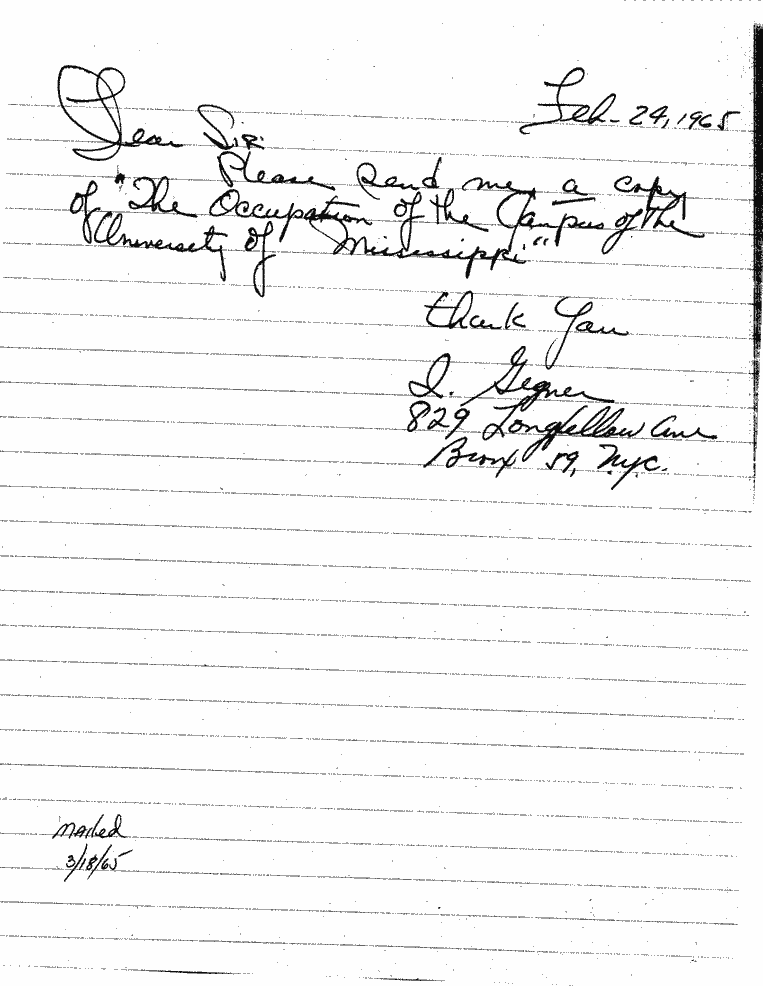 Feb. 24, 1965
Dear Sir:
Please send me, a copy
of "The Occupation of the Campus of the
University of Mississippi"
Thank You
I. Gegner
829 Longfellow Ave
Bronx 59, N.Y.C.
Mailed
3/18/65